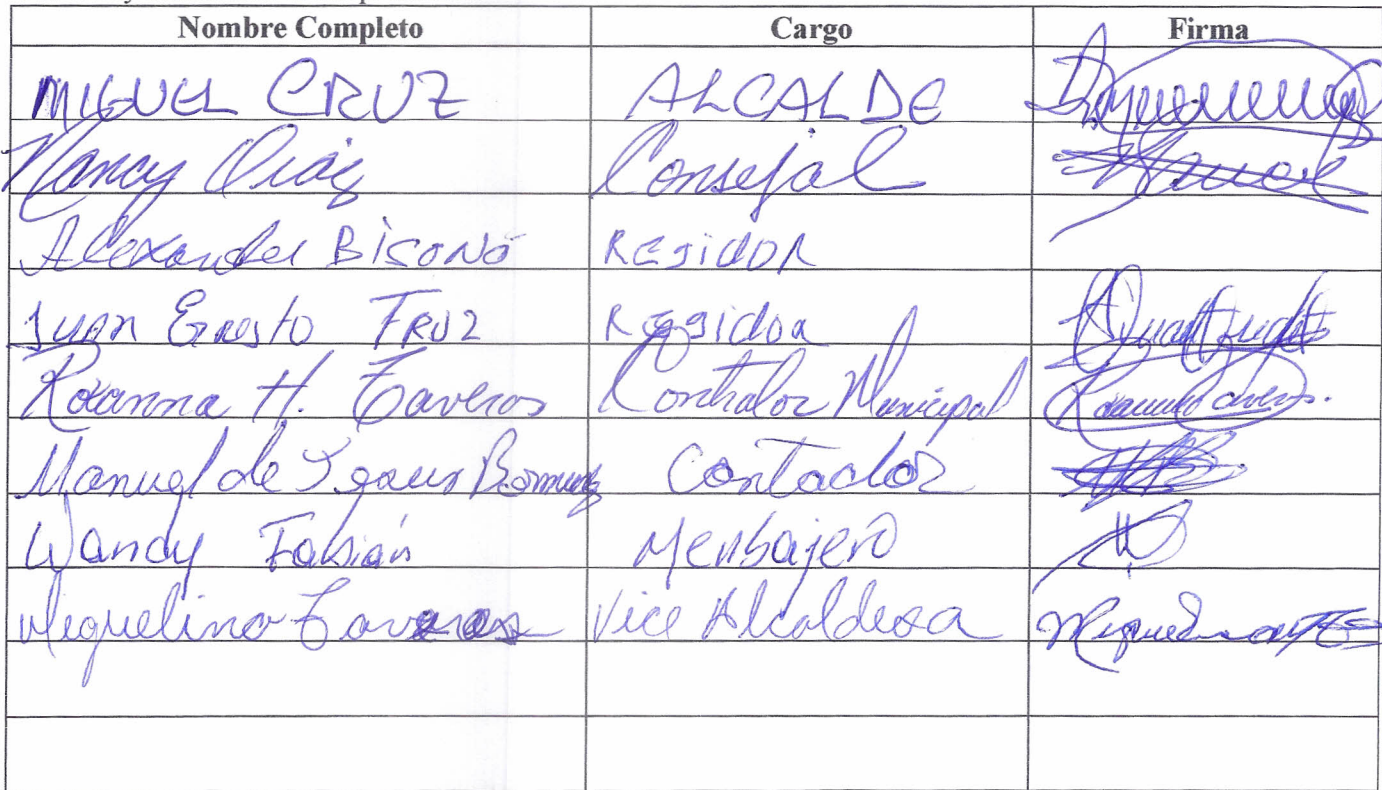 Nombre Completo Cargo Firma
MIGUEL CRUZ ALCALDE
Nancy Diaz Consejal
Alexander BISONÓ REgidoR
Juan Ernesto TRUZ Reggidor
Roxanna H. Taveras Contralor Municipal
Manuel de Jesus Contador
Wandy Fabián Mensajero
Miguelina Taveras Vice Alcaldesa